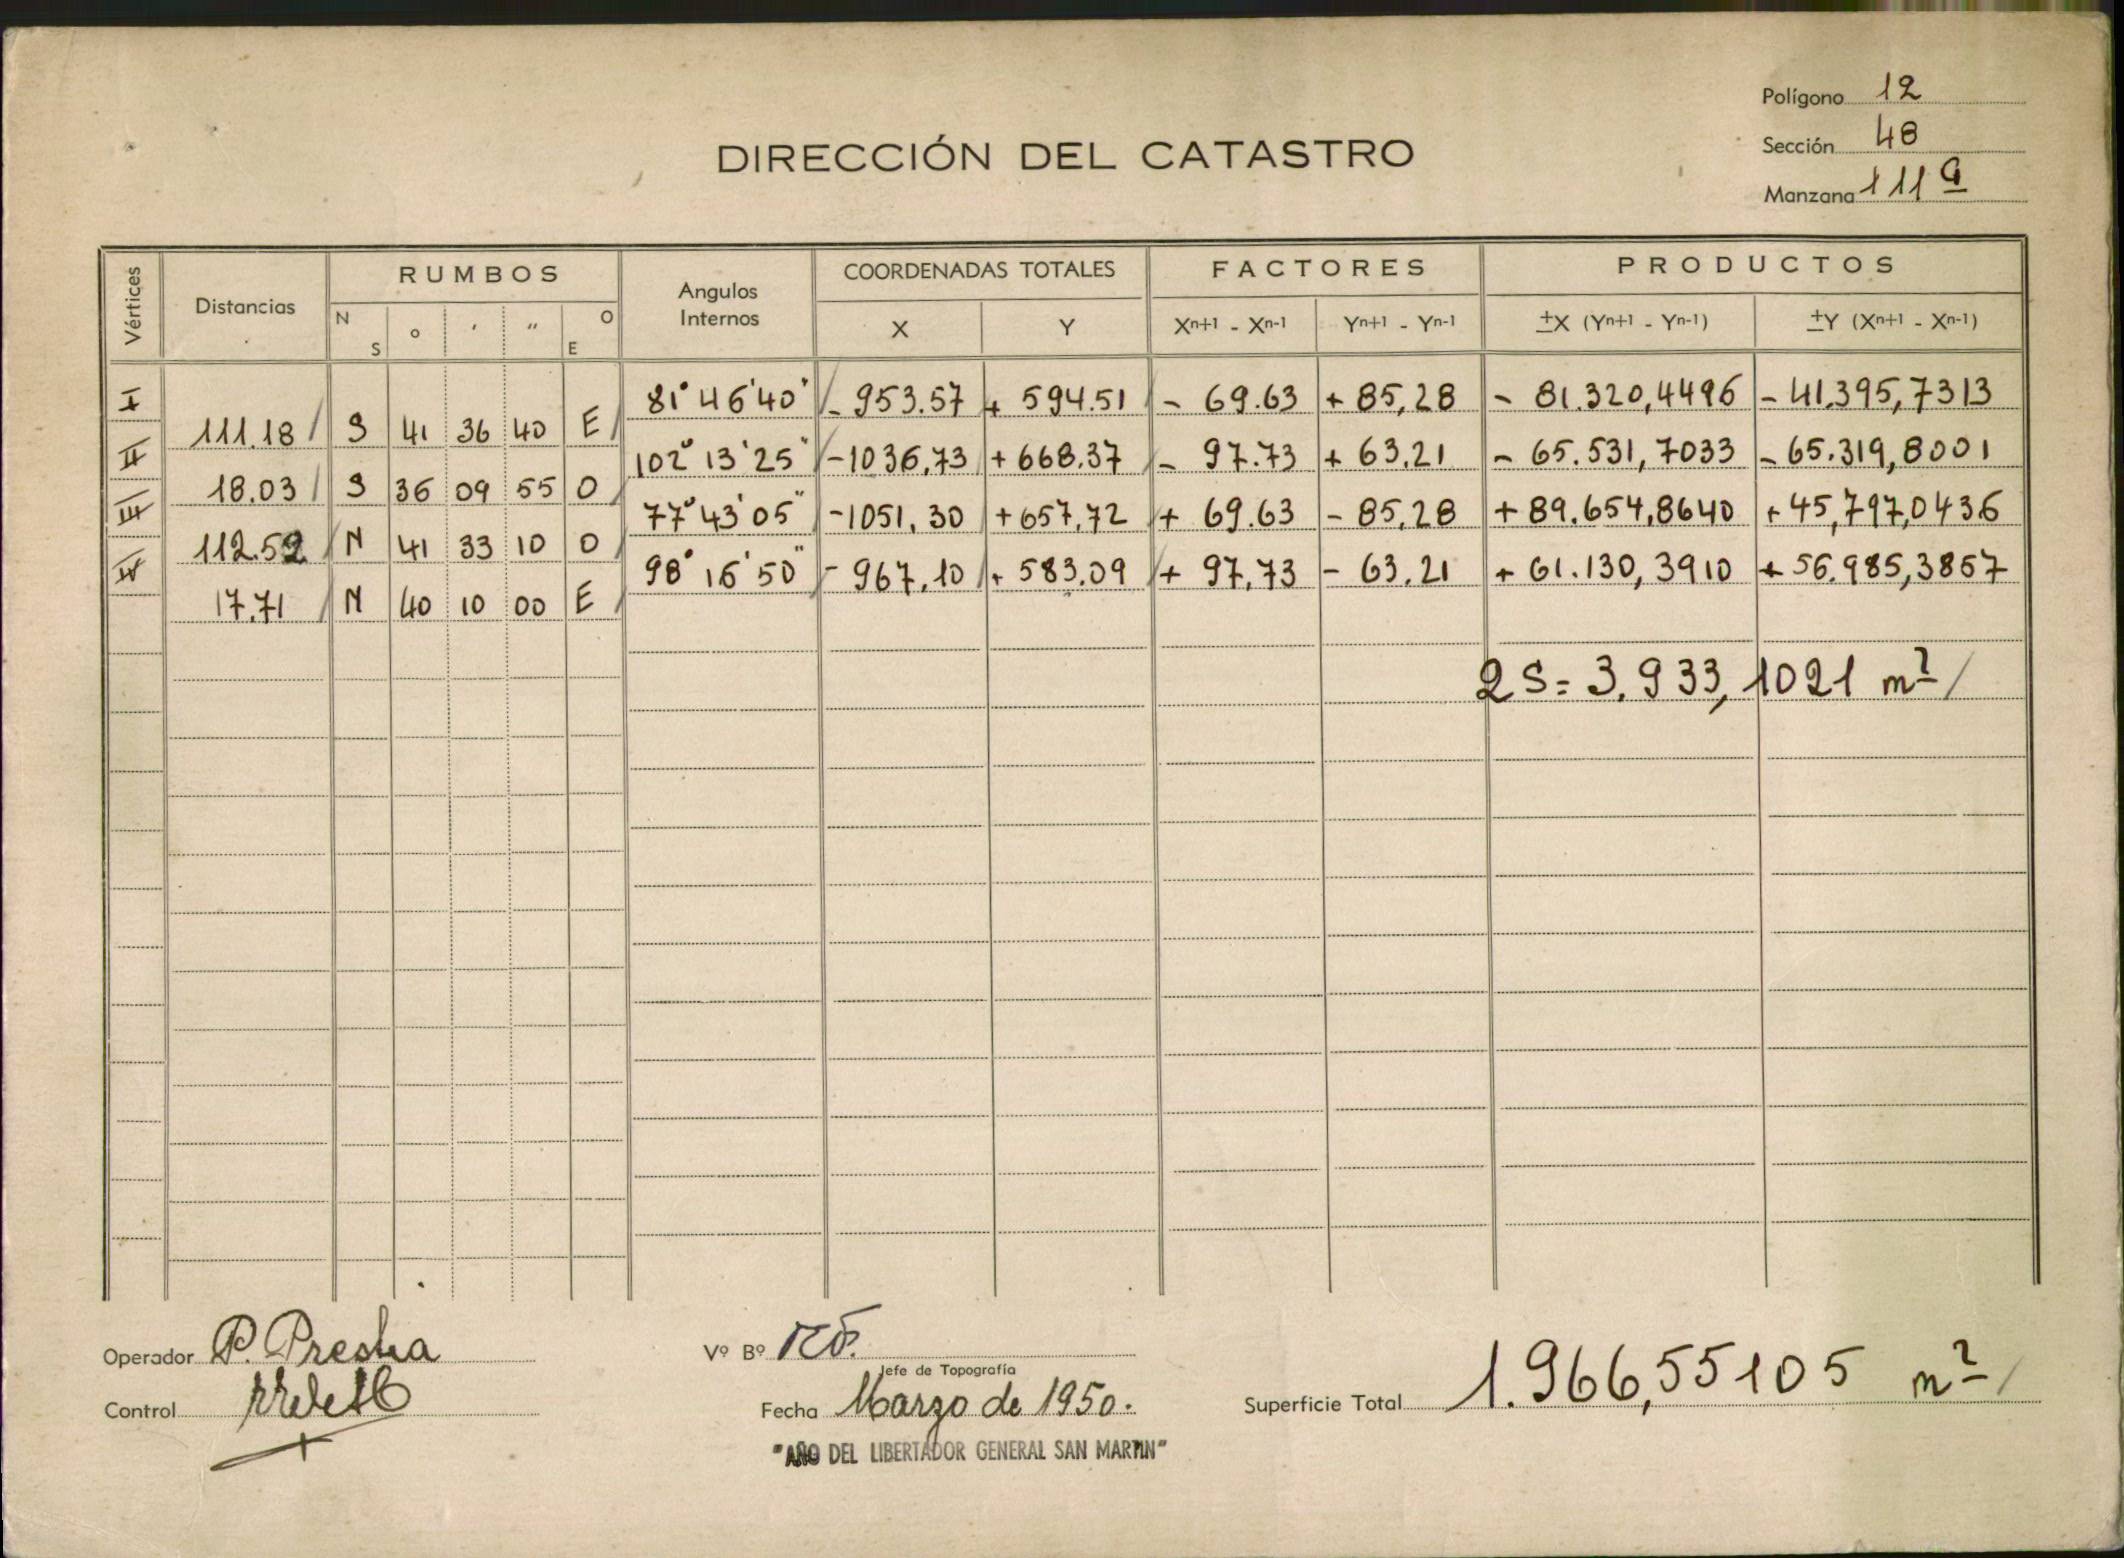 Polígono 12
Sección 48
Manzana 111 a
DIRECCIÓN DEL CATASTRO
Vértices Distancias RUMBOS Angulos Internos COORDENADAS TOTALES FACTORES PRODUCTOS
N S ° ′ ″ O E X Y Xn+1 - Xn-1 Yn+1 - Yn-1 ±X (Yn+1 - Yn-1) ±Y (Xn+1 - Xn-1)
I 81° 46' 40" - 953.57 + 594.51 - 69.63 + 85,28 - 81.320,4496 - 41.395,7313
111.18 S 41 36 40 E
II 102° 13' 25" -1036,73 + 668.37 - 97.73 + 63,21 - 65.531,7033 - 65.319,8001
18.03 S 36 09 55 O
III 77° 43' 05" -1051,30 + 657,72 + 69.63 - 85,28 + 89.654,8640 + 45,797,0436
112.52 N 41 33 10 O
IV 98° 16' 50" - 967,10 + 583,09 + 97,73 - 63,21 + 61.130,3910 + 56.985,3857
17.71 N 40 10 00 E
2 S = 3.933,1021 m²
Operador P. Presta
Vº Bº
Jefe de Topografía
Control
Fecha Marzo de 1950.
Superficie Total 1.966,55105 m²
"AÑO DEL LIBERTADOR GENERAL SAN MARTIN"